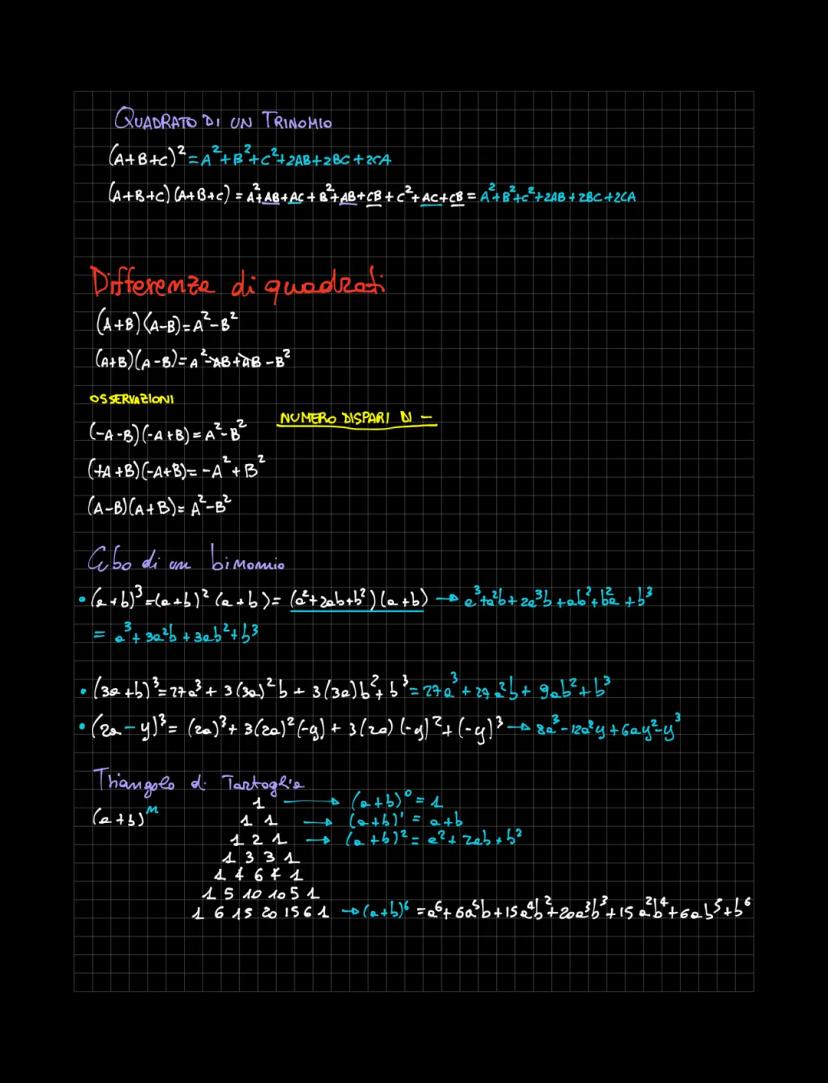 QUADRATO DI UN TRINOMIO
(A+B+C)² = A²+B²+C²+2AB+2BC+2CA
(A+B+C)(A+B+C) = A²+AB+AC+B²+AB+CB+C²+AC+CB = A²+B²+C²+2AB+2BC+2CA
Differenza di quadrati
(A+B)(A-B)=A²-B²
(A+B)(A-B)=A²-AB+AB-B²
OSSERVAZIONI
NUMERO DISPARI DI -
(-A-B)(-A+B)=A²-B²
(+A+B)(-A+B)=-A²+B²
(A-B)(A+B)=A²-B²
Cubo di un binomio
• (a+b)³=(a+b)²(a+b)=(a²+2ab+b²)(a+b) → a³+a²b+2a³b+ab²+b²a+b³
= a³+3a²b+3ab²+b³
• (3a+b)³=27a³+3(3a)²b+3(3a)b²+b³=27a³+27a²b+9ab²+b³
• (2a-y)³=(2a)³+3(2a)²(-y)+3(2a)(-y)²+(-y)³ → 8a³-12a²y+6ay²-y³
Triangolo di Tartaglia
1 → (a+b)⁰=1
(a+b)ⁿ 1 1 → (a+b)¹=a+b
1 2 1 → (a+b)²=a²+2ab+b²
1 3 3 1
1 4 6 4 1
1 5 10 10 5 1
1 6 15 20 15 6 1 → (a+b)⁶=a⁶+6a⁵b+15a⁴b²+20a³b³+15a²b⁴+6ab⁵+b⁶